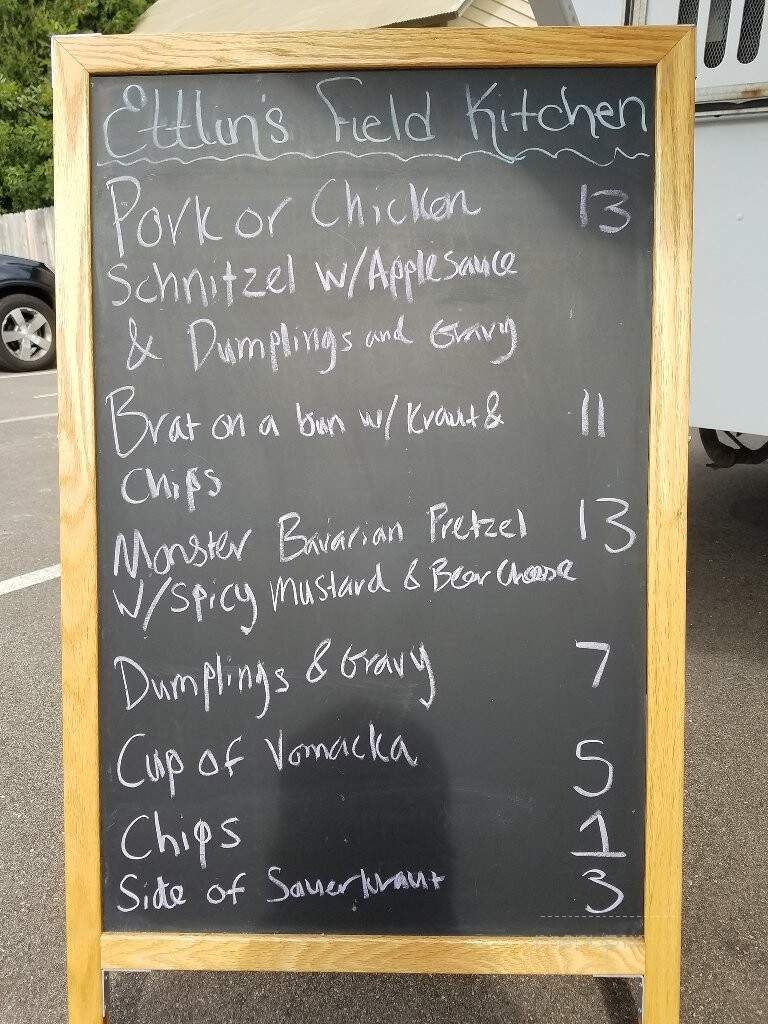 Ettlin's Field Kitchen
Pork or Chicken 13
Schnitzel w/Applesauce
& Dumplings and Gravy
Brat on a bun w/ Kraut & 11
Chips
Monster Bavarian Pretzel 13
w/Spicy Mustard & Beer Cheese
Dumplings & Gravy 7
Cup of Vomacka 5
Chips 1
Side of Sauerkraut 3